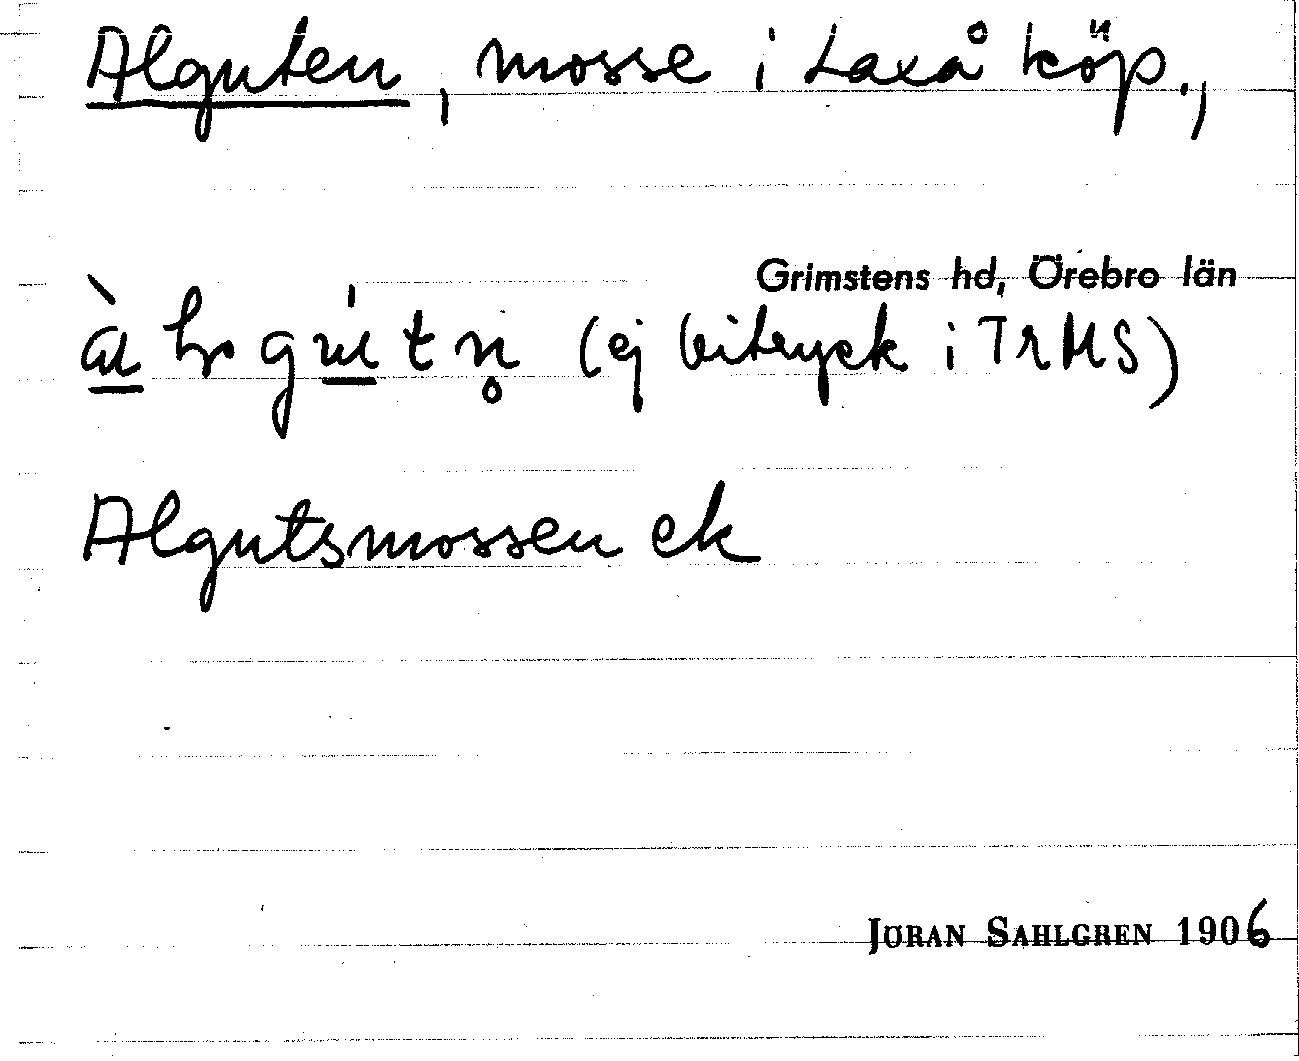 Alguten, mosse i Laxå köp.,
Grimstens hd, Örebro län
(ej bitryck i TRMS)
Algutsmossen ek
JÖRAN SAHLGREN 1906